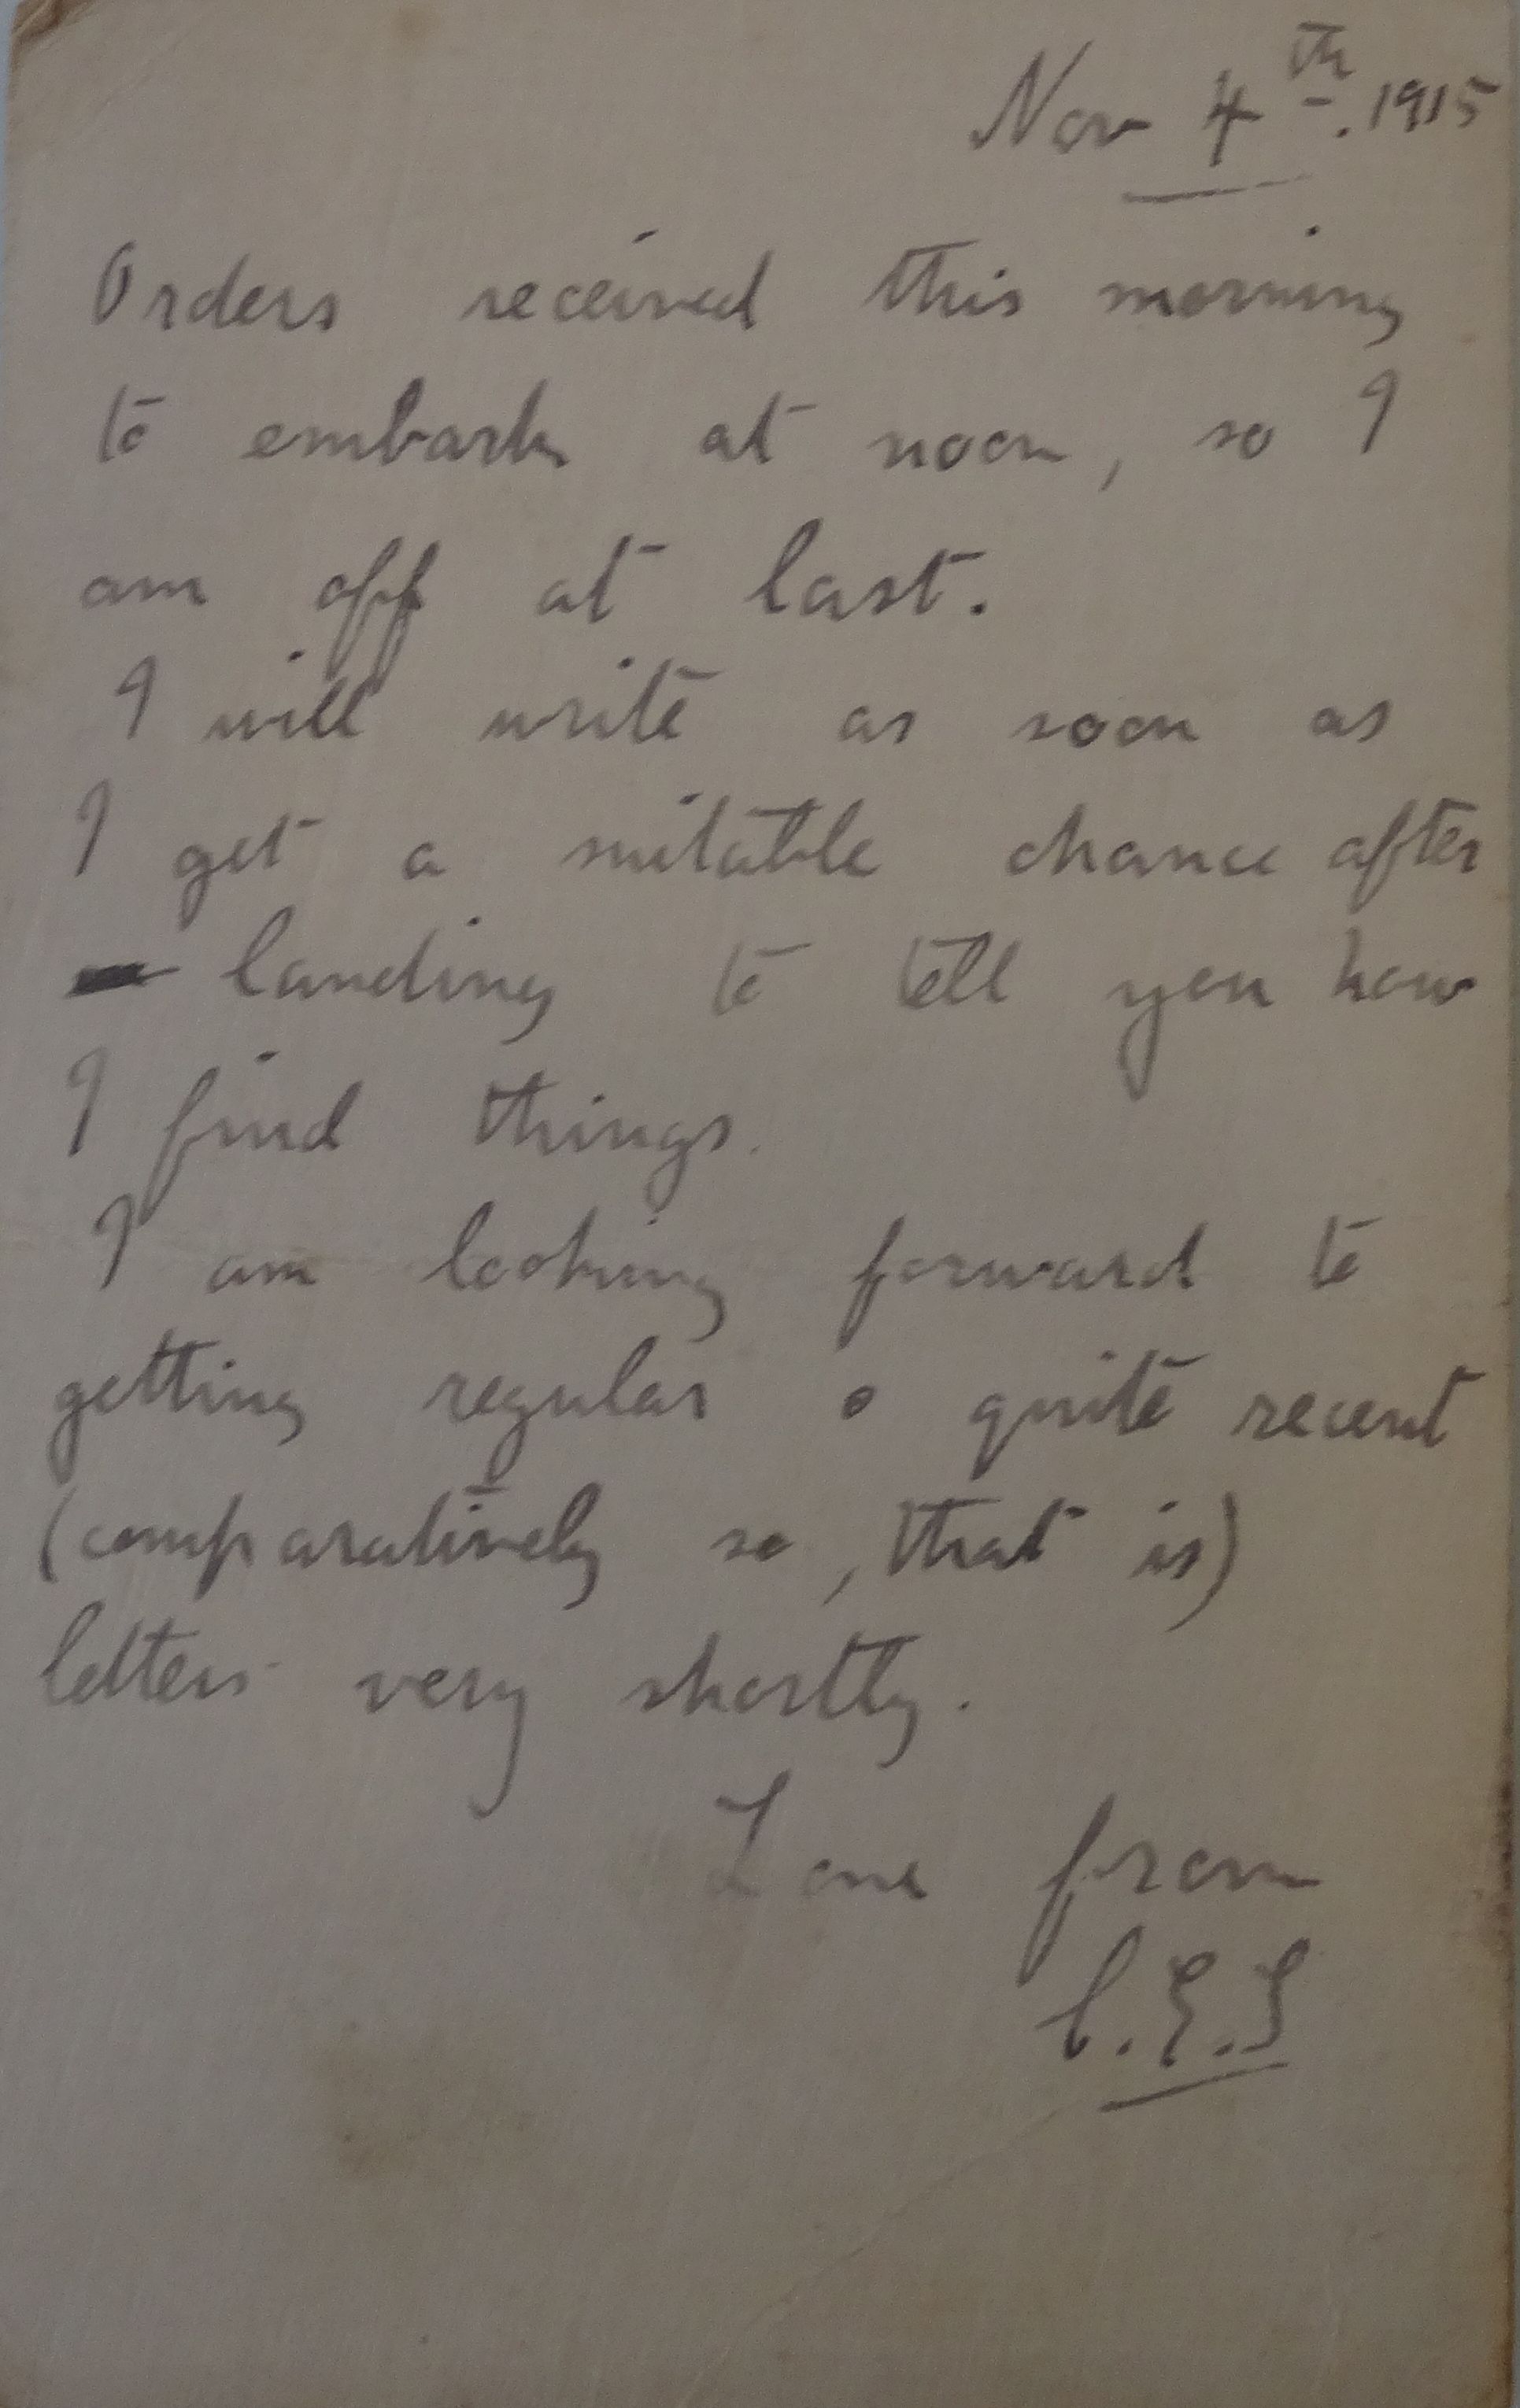 Nov 4th. 1915
Orders received this morning
to embark at noon, so I
am off at last.
I will write as soon as
I get a suitable chance after
landing to tell you how
I find things.
I am looking forward to
getting regular & quite recent
(comparatively so, that is)
letters very shortly.
Love from
C.E.S